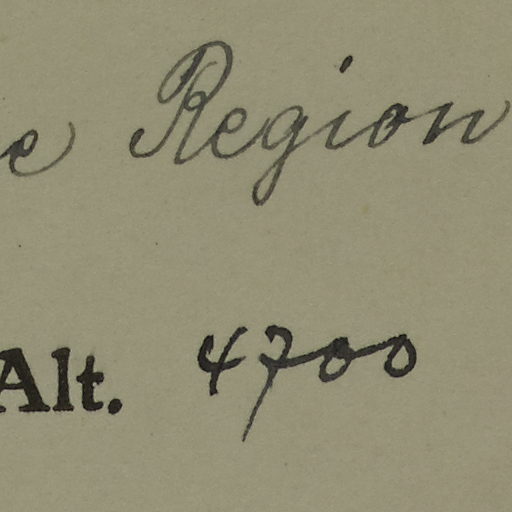 e Region
Alt. 4700